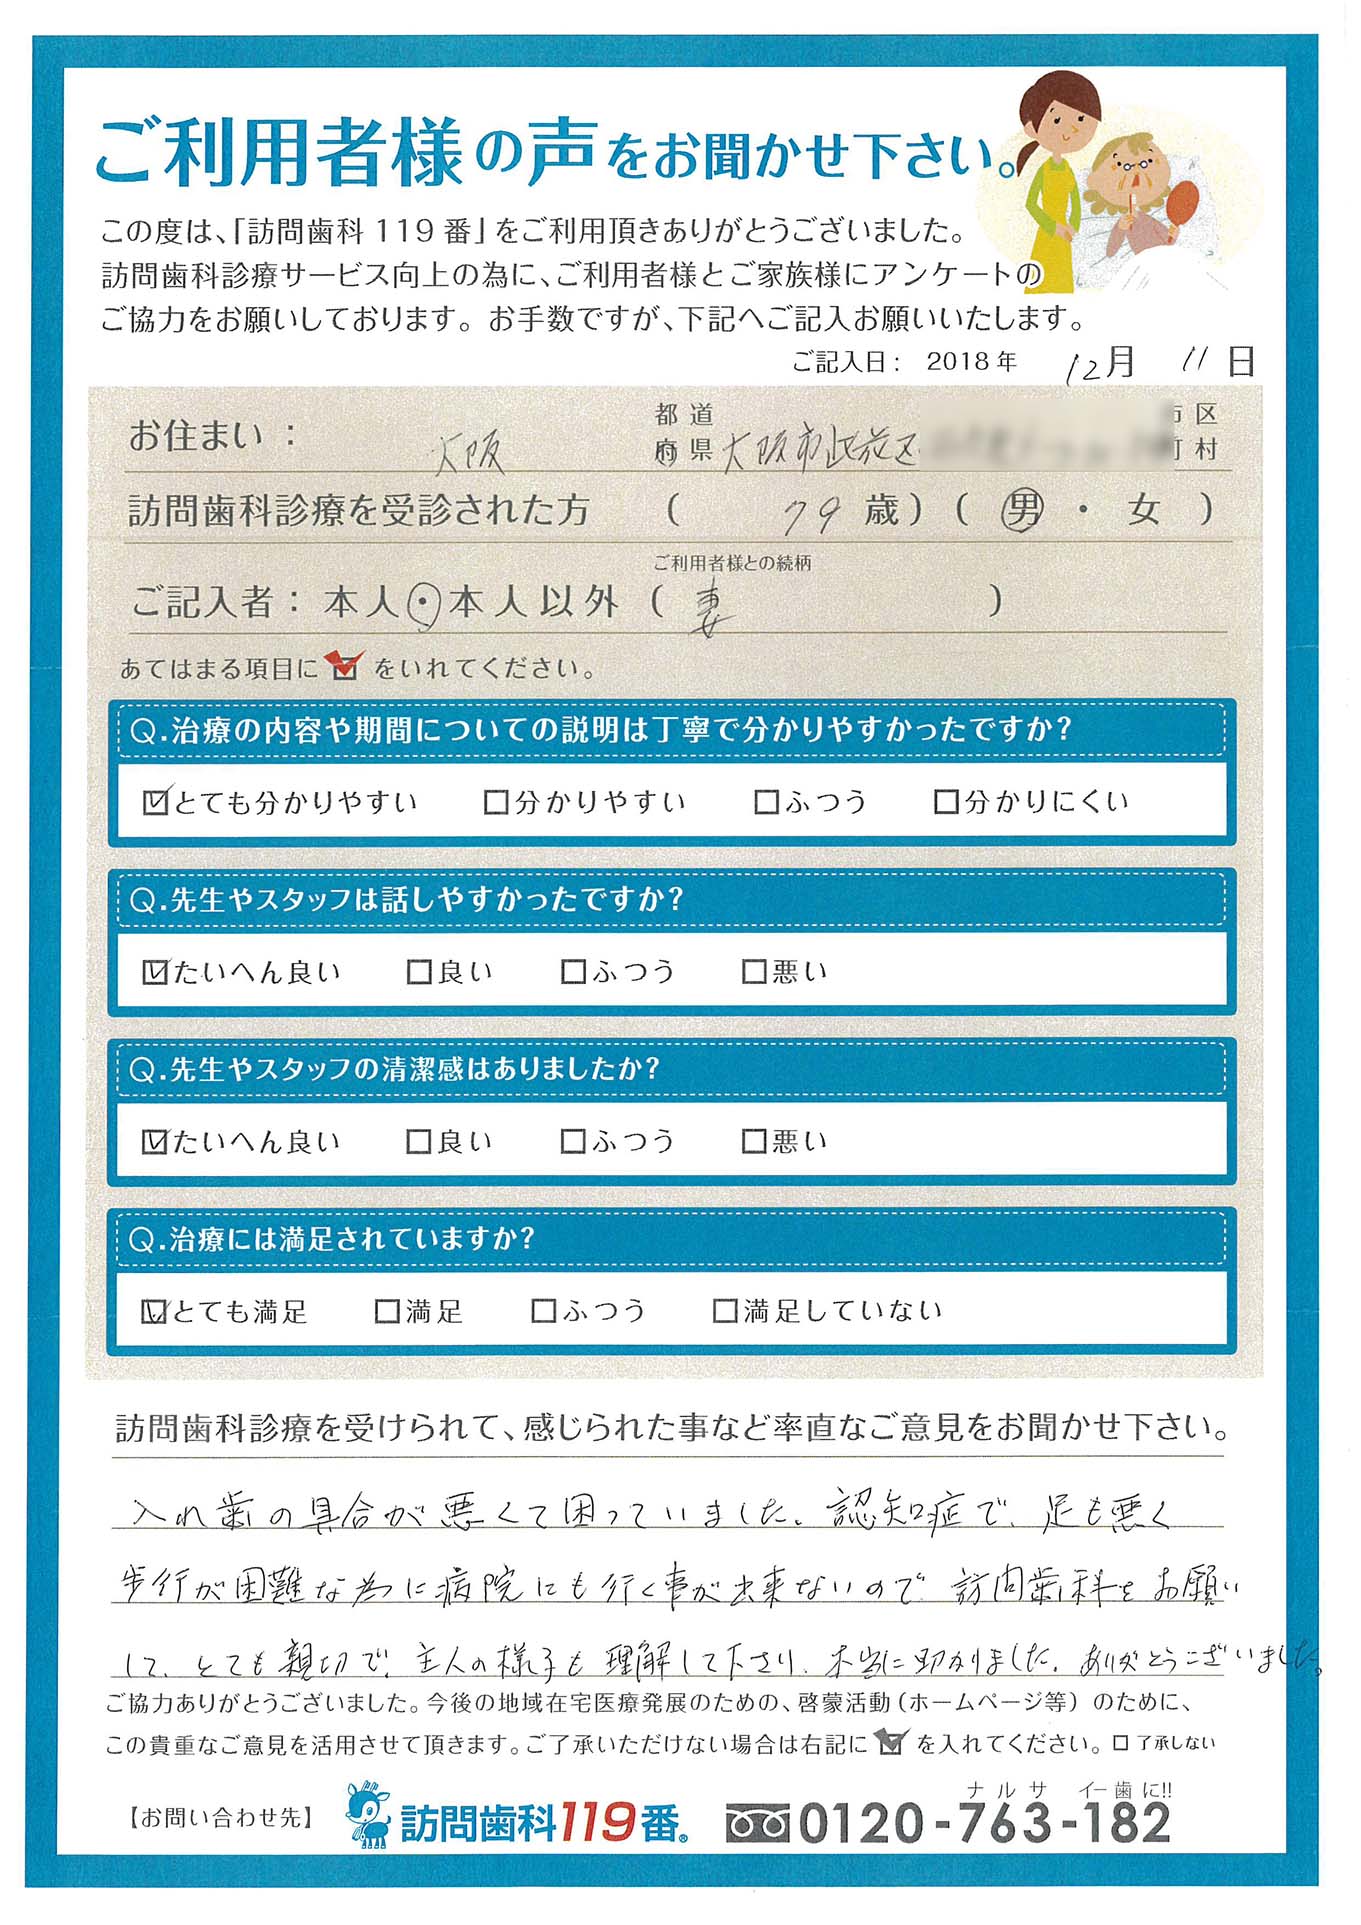 ご利用者様の声をお聞かせ下さい。
この度は、「訪問歯科119番」をご利用頂きありがとうございました。
訪問歯科診療サービス向上の為に、ご利用者様とご家族様にアンケートの
ご協力をお願いしております。お手数ですが、下記へご記入お願いいたします。
ご記入日： 2018年 12月 11日
お住まい： 大阪 都道府県 大阪市此花区 市区町村
訪問歯科診療を受診された方 （ 79 歳）（ 男 ・ 女 ）
ご利用者様との続柄
ご記入者：本人・本人以外（ 妻 ）
あてはまる項目に☑をいれてください。
Q.治療の内容や期間についての説明は丁寧で分かりやすかったですか？
☑とても分かりやすい □分かりやすい □ふつう □分かりにくい
Q.先生やスタッフは話しやすかったですか？
☑たいへん良い □良い □ふつう □悪い
Q.先生やスタッフの清潔感はありましたか？
☑たいへん良い □良い □ふつう □悪い
Q.治療には満足されていますか？
☑とても満足 □満足 □ふつう □満足していない
訪問歯科診療を受けられて、感じられた事など率直なご意見をお聞かせ下さい。
入れ歯の具合が悪くて困っていました。認知症で、足も悪く
歩行が困難な為に病院にも行く事が出来ないので 訪問歯科をお願い
して、とても親切で、主人の様子も理解して下さり、本当に助かりました。ありがとうございました。
ご協力ありがとうございました。今後の地域在宅医療発展のための、啓蒙活動（ホームページ等）のために、
この貴重なご意見を活用させて頂きます。ご了承いただけない場合は右記に☑を入れてください。□了承しない
ナルサ イー歯に!!
【お問い合わせ先】 訪問歯科119番® 0120-763-182